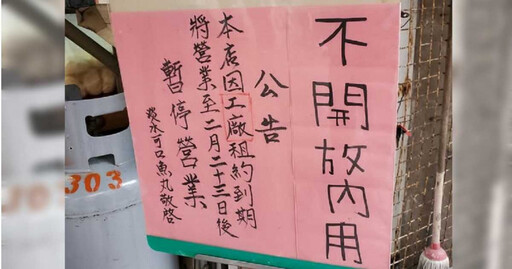 不開放內用
公告
本店因工廠租約到期
將營業至二月二十三日後
暫停營業
淡水可口魚丸敬啟
303